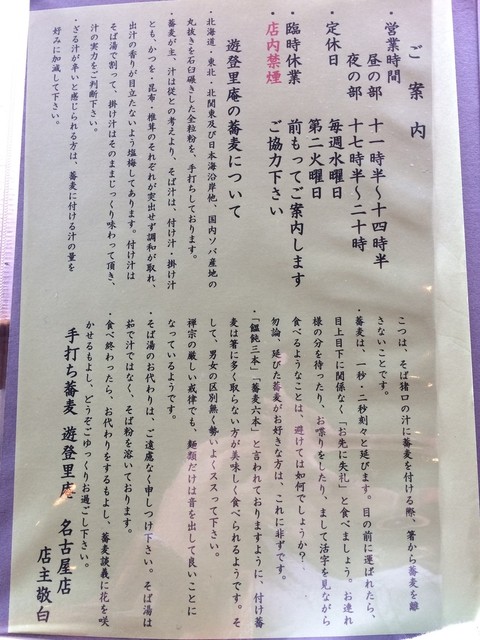 ご案内
・営業時間
昼の部 十一時半～十四時半
夜の部 十七時半～二十時
・定休日 毎週水曜日
第二火曜日
・臨時休業 前もってご案内します
・店内禁煙 ご協力下さい
遊登里庵の蕎麦について
・北海道・東北・北関東及び日本海沿岸他、国内ソバ産地の
丸抜きを石臼碾きした全粒粉を、手打ちしております。
・蕎麦が主、汁は従との考えより、そば汁は、付け汁・掛け汁
とも、かつを・昆布・椎茸のそれぞれが突出せず調和が取れ、
出汁の香りが目立たないよう塩梅してあります。付け汁は
そば湯で割って、掛け汁はそのままじっくり味わって頂き、
汁の実力をご判断下さい。
・ざる汁が辛いと感じられる方は、蕎麦に付ける汁の量を
好みに加減して下さい。
こつは、そば猪口の汁に蕎麦を付ける際、箸から蕎麦を離
さないことです。
・蕎麦は、一秒・二秒刻々と延びます。目の前に運ばれたら、
目上目下に関係なく「お先に失礼」と食べましょう。お連れ
様の分を待ったり、お喋りをしたり、まして活字を見ながら
食べるようなことは、避けては如何でしょうか？
勿論、延びた蕎麦がお好きな方は、これに非ずです。
・「饂飩三本」「蕎麦六本」と言われておりますように、付け蕎
麦は箸に多く取らない方が美味しく食べられるようです。そ
して、男女の区別無く勢いよくススって下さい。
禅宗の厳しい戒律でも、麺類だけは音を出して良いことに
なっているようです。
・そば湯のお代わりは、ご遠慮なく申しつけ下さい。そば湯は
茹で汁ではなく、そば粉を溶いております。
・食べ終わったら、お代わりをするもよし、蕎麦談義に花を咲
かせるもよし、どうぞごゆっくりお過ごし下さい。
手打ち蕎麦 遊登里庵 名古屋店
店主敬白